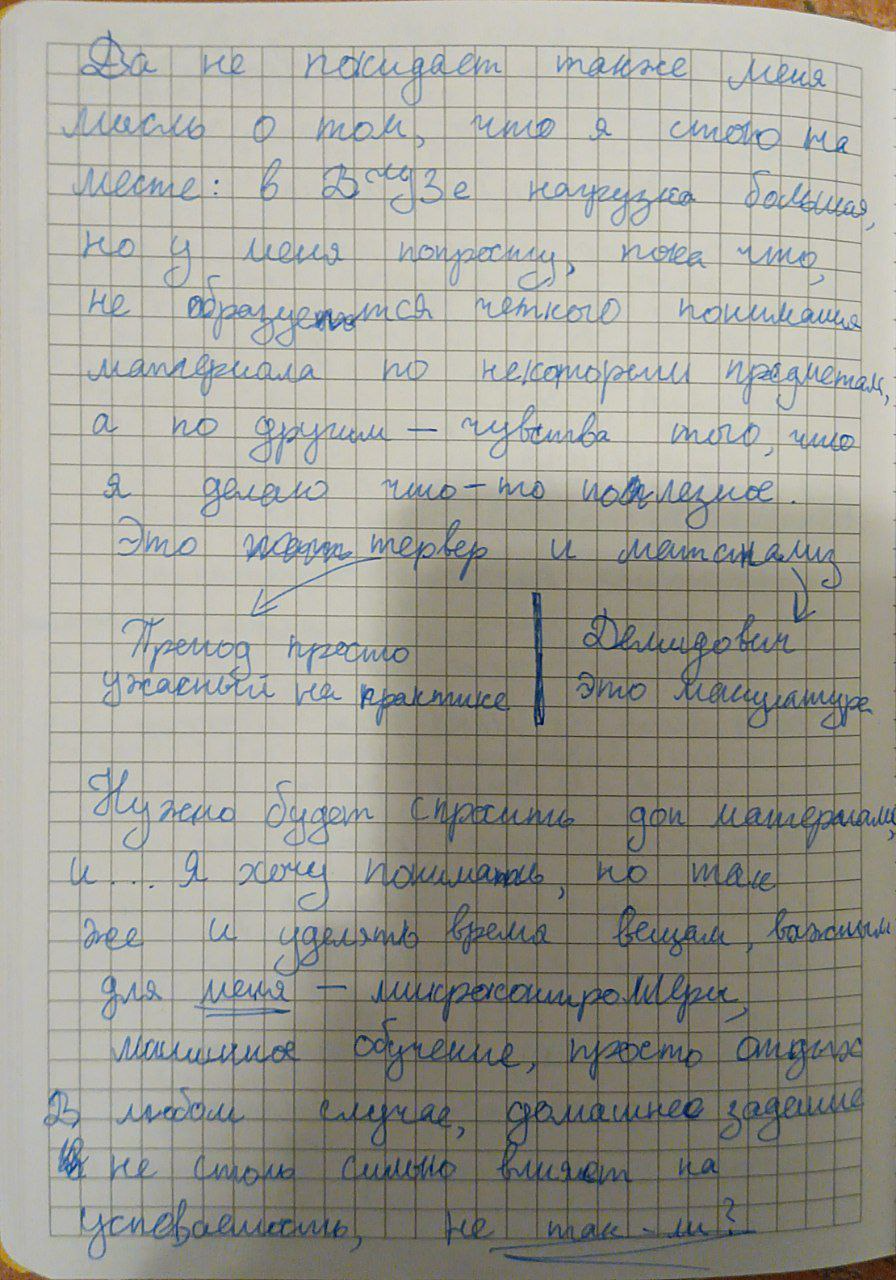 Да не покидает также меня
мысль о том, что я стою на
месте: в ВУЗе нагрузка большая,
но у меня попросту, пока что,
не образуется четкого понимания
материала по некоторым предметам,
а по другим — чувства того, что
я делаю что-то полезное.
Это тервер и матанализ
Препод просто
ужасный на практике
Демидович
это макулатура
Нужно будет спросить доп материалы,
и... Я хочу понимать, но так
же и уделять время вещам, важным
для меня — микроконтроллеры,
машинное обучение, просто отдых
В любом случае, домашнее задание
не столь сильно влияет на
успеваемость, не так-ли?